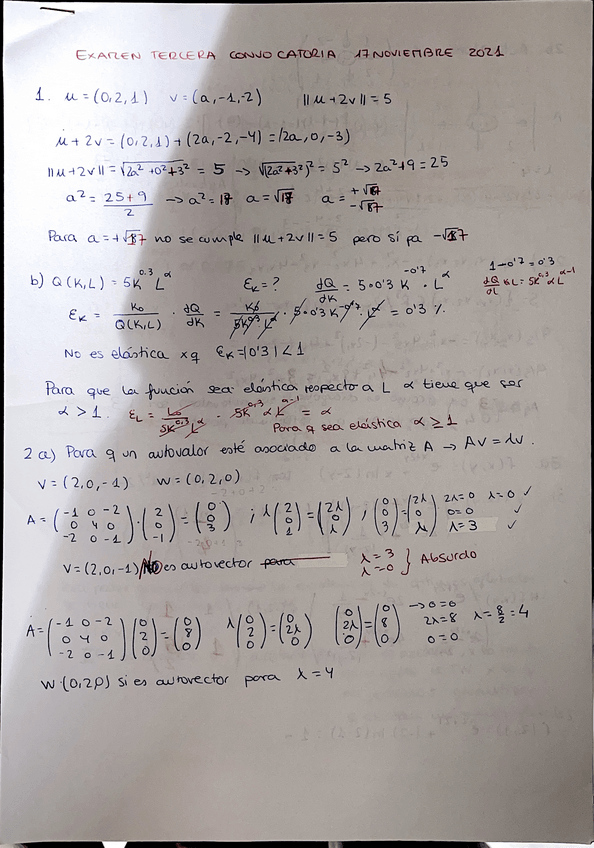 EXAMEN TERCERA CONVOCATORIA 17 NOVIEMBRE 2021
1. u = (0,2,1) v = (a,-1,-2) ||u+2v|| = 5
u + 2v = (0,2,1) + (2a,-2,-4) = (2a,0,-3)
||u+2v|| = √(2a²+0²+3²) = 5 → √(2a²+3²)² = 5² → 2a²+9 = 25
a² = (25+9)/2 → a² = 17 a = √17 a = +√17 -√17
Para a = +√17 no se cumple ||u+2v|| = 5 pero sí pa -√17
b) Q(K,L) = 5K^0.3 L^α ε_K = ? dQ/dK = 5·0'3 K^-0'7 · L^α 1-0'7 = 0'3
dQ/dL KL = 5K^0.3 α L^α-1
ε_K = K₀/Q(K,L) · dQ/dK = K₀/5K^0.3 L^α · 5·0'3 K^-0'7 · L^α = 0'3 %
No es elástica xq ε_K = |0'3| < 1
Para que la función sea elástica respecto a L α tiene que ser
α > 1. ε_L = L₀/5K^0.3 L^α · 5K^0.3 α L^α-1 = α
Para q sea elástica α ≥ 1
2 a) Para q un autovalor esté asociado a la matriz A → Av = λv.
v = (2,0,-1) w = (0,2,0)
A = (-1 0 -2 / 0 4 0 / -2 0 -1) · (2 / 0 / -1) = (0 / 0 / 3) ; λ(2 / 0 / 1) = (2λ / 0 / λ) ; (0 / 0 / 3) = (2λ / 0 / λ) 2λ=0 λ=0 ✓ 0=0 λ=3 ✓
v = (2,0,-1) No es autovector para λ = 3 λ = 0 } Absurdo
A = (-1 0 -2 / 0 4 0 / -2 0 -1) (0 / 2 / 0) = (0 / 8 / 0) λ(0 / 2 / 0) = (0 / 2λ / 0) (0 / 2λ / 0) = (0 / 8 / 0) → 0=0 2λ=8 0=0 λ = 8/2 = 4
w·(0,2,0) si es autovector para λ = 4